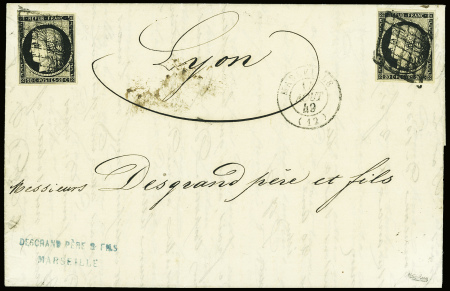 REPUB. FRANC.
REPUB. FRANC.
20 C. POSTES 20 C.
Lyon
49
(12)
Messieurs Desgrand père et fils
DESGRAND PÈRE & FILS
MARSEILLE